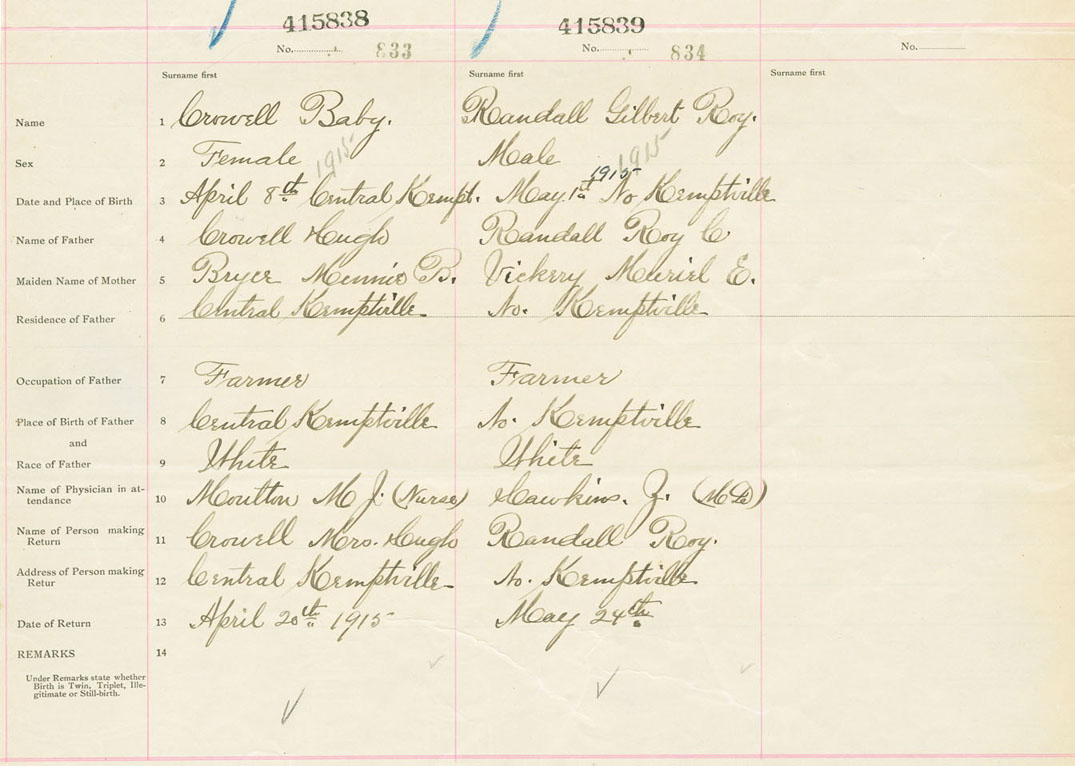 415838 415839
No. 833 No. 834 No.
Surname first Surname first Surname first
Name 1 Crowell Baby. Randall Gilbert Roy.
Sex 2 Female 1915 Male 1915
Date and Place of Birth 3 April 8th Central Kempt. May 1st 1915 No Kemptville
Name of Father 4 Crowell Hugh Randall Roy C
Maiden Name of Mother 5 Bryer Minnie B. Vickery Muriel E.
Residence of Father 6 Central Kemptville No. Kemptville
Occupation of Father 7 Farmer Farmer
Place of Birth of Father 8 Central Kemptville No. Kemptville
and
Race of Father 9 White White
Name of Physician in at-
tendance 10 Moulton M J. (Nurse) Hawkins. Z. (MD)
Name of Person making
Return 11 Crowell Mrs. Hugh Randall Roy.
Address of Person making
Retur 12 Central Kemptville No. Kemptville
Date of Return 13 April 20th 1915 May 24th
REMARKS 14
Under Remarks state whether
Birth is Twin, Triplet, Ille-
gitimate or Still-birth.